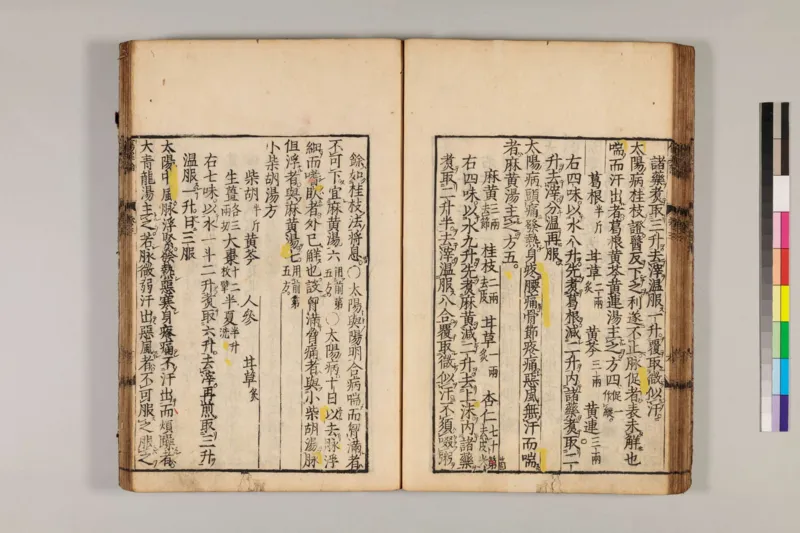 諸藥煮取三升去滓溫服一升覆取微似汗
太陽病桂枝證醫反下之利遂不止脉促者表未解也
喘而汗出者葛根黄芩黄連湯主之方四
葛根半斤 甘草二兩炙 黄芩三兩 黄連三兩
右四味以水八升先煮葛根減二升內諸藥煮取二
升去滓分溫再服
太陽病頭痛發熱身疼腰痛骨節疼痛惡風無汗而喘
者麻黄湯主之方五
麻黄三兩去節 桂枝二兩去皮 甘草一兩炙 杏仁七十箇
右四味以水九升先煮麻黄減二升去上沫內諸藥
煮取二升半去滓溫服八合覆取微似汗不須啜粥
餘如桂枝法將息○太陽與陽明合病喘而胷滿者
不可下宜麻黄湯六用前第五方○太陽病十日以去脉浮
細而嗜臥者外已解也設胷滿脅痛者與小柴胡湯脉
但浮者與麻黄湯七用前第五方
小柴胡湯方
柴胡半斤 黄芩 人參 甘草炙
生薑各三兩切 大棗十二枚擘 半夏半升洗
右七味以水一斗二升煮取六升去滓再煎取三升
溫服一升日三服
太陽中風脉浮緊發熱惡寒身疼痛不汗出而煩躁者
大青龍湯主之若脉微弱汗出惡風者不可服之服之